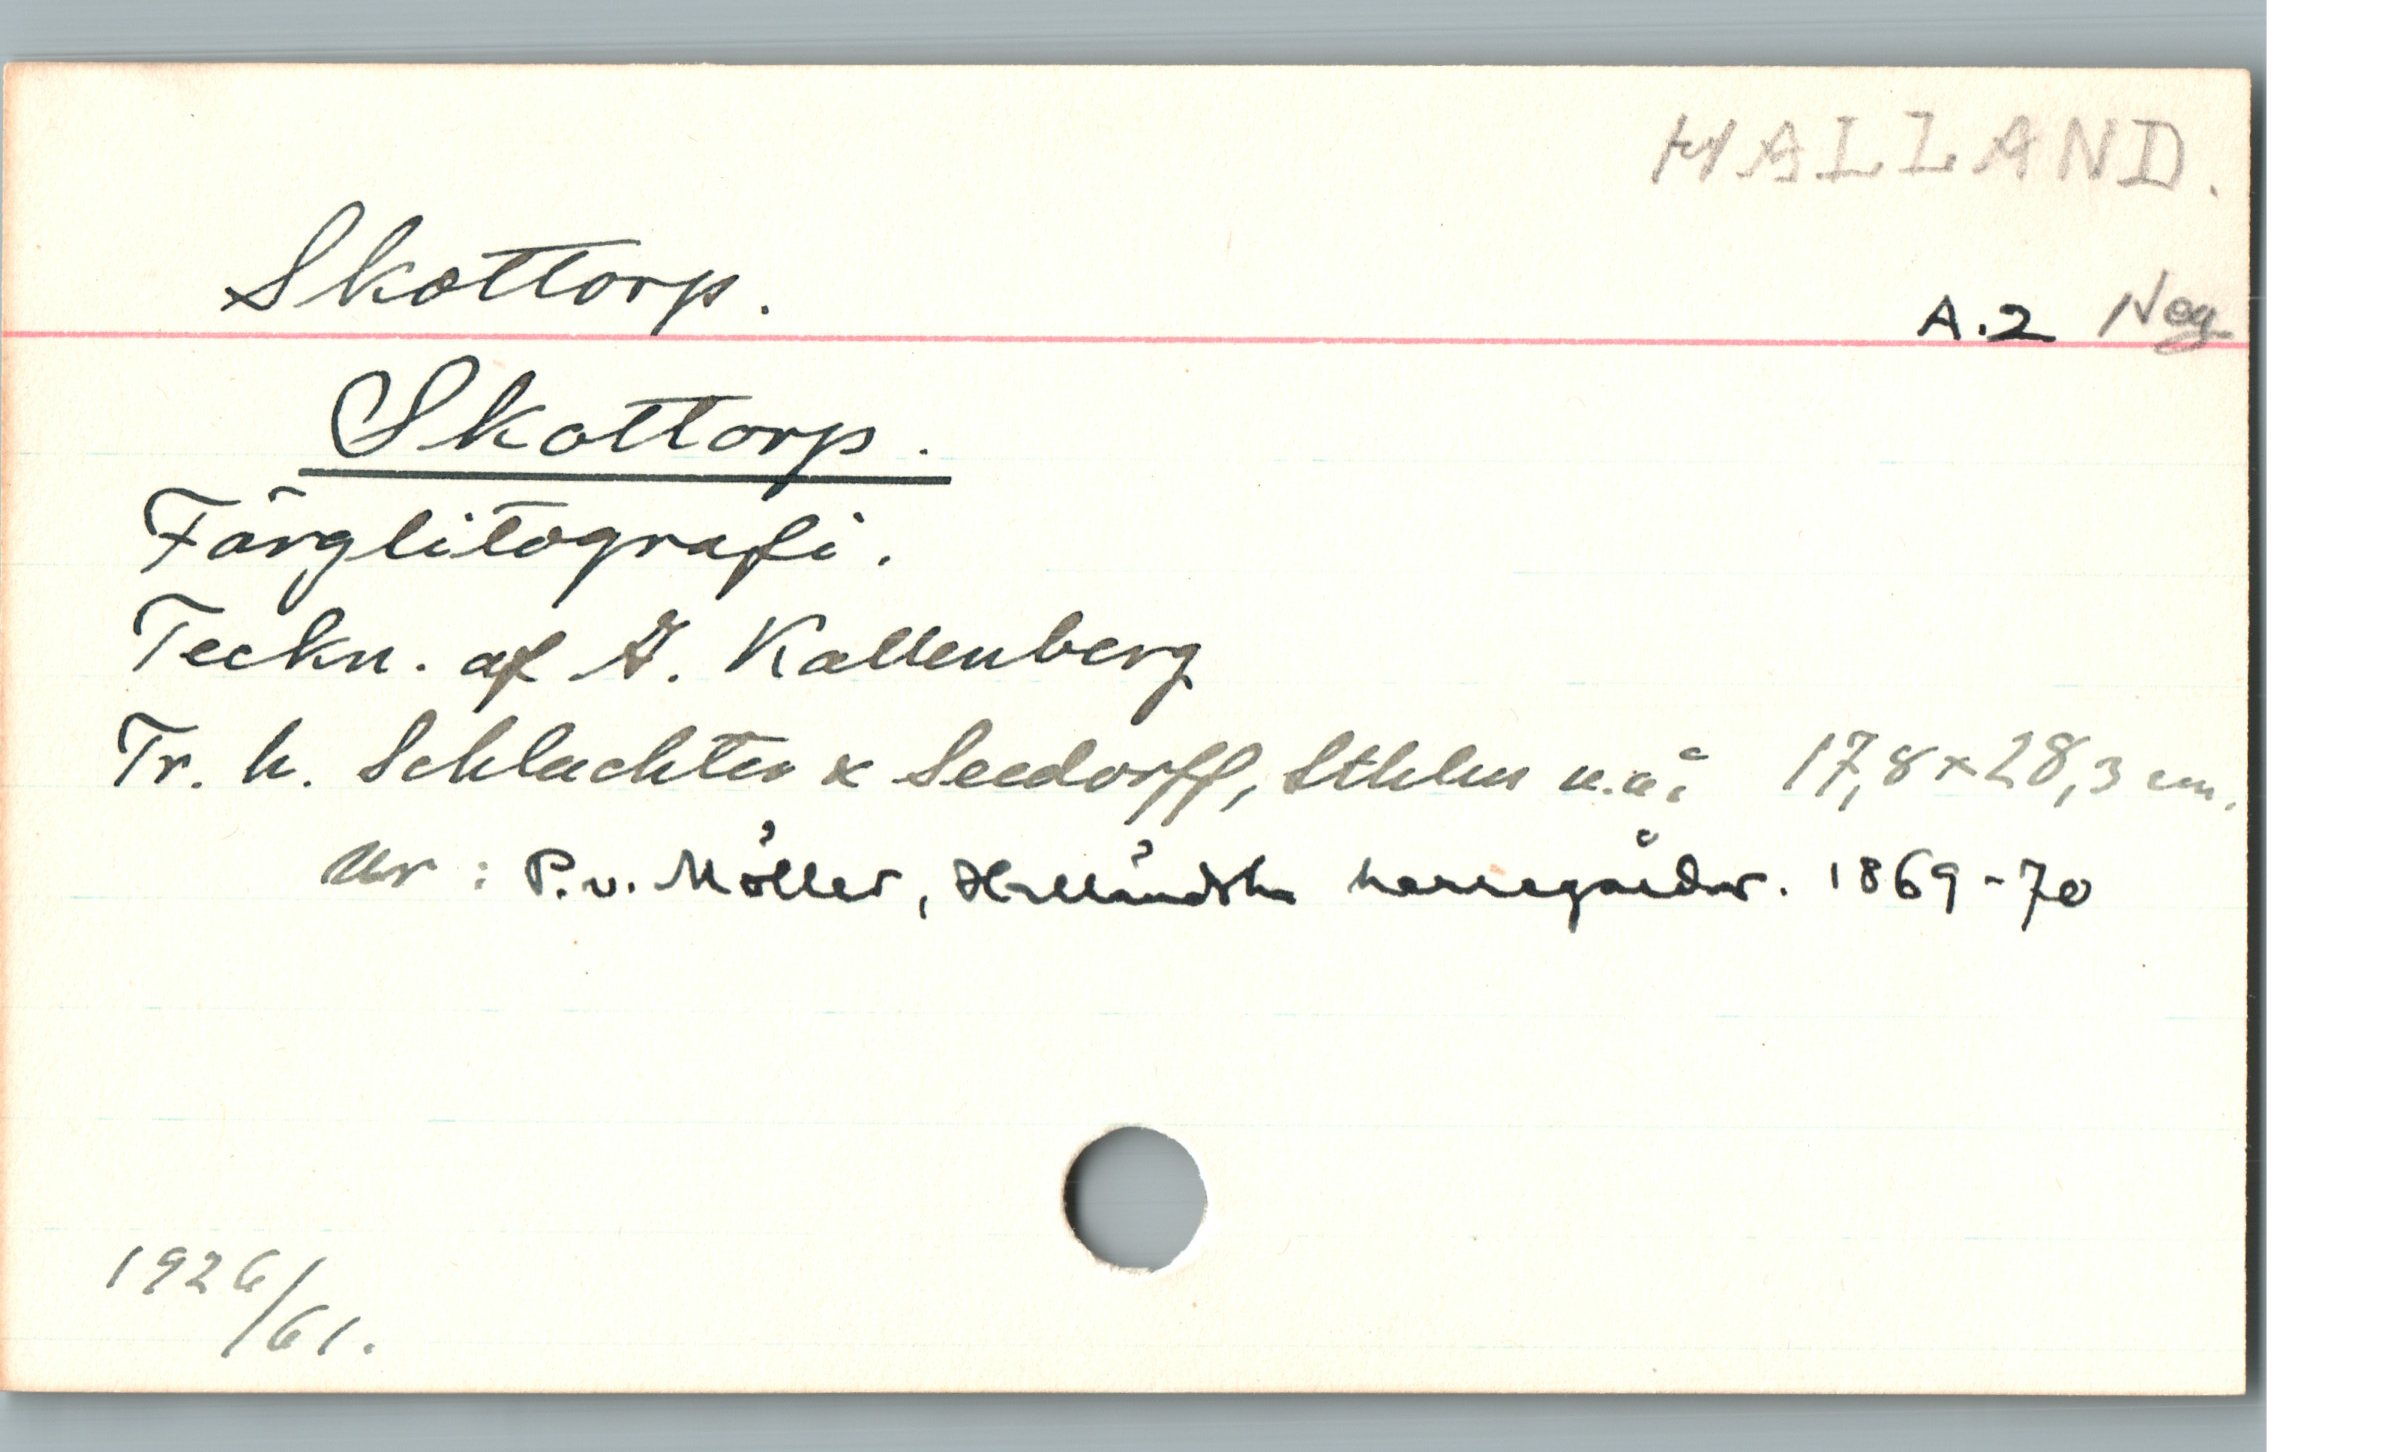 HALLAND.
Skottorp.
A.2 Neg
Skottorp.
Färglitografi.
Teckn. af A. Kallenberg
Tr. h. Schlachter & Seedorff, Sthlm u.å. 17,8 x 28,3 cm.
Ur : P. v. Möller, Halländska herregårdar. 1869-70
1926/61.